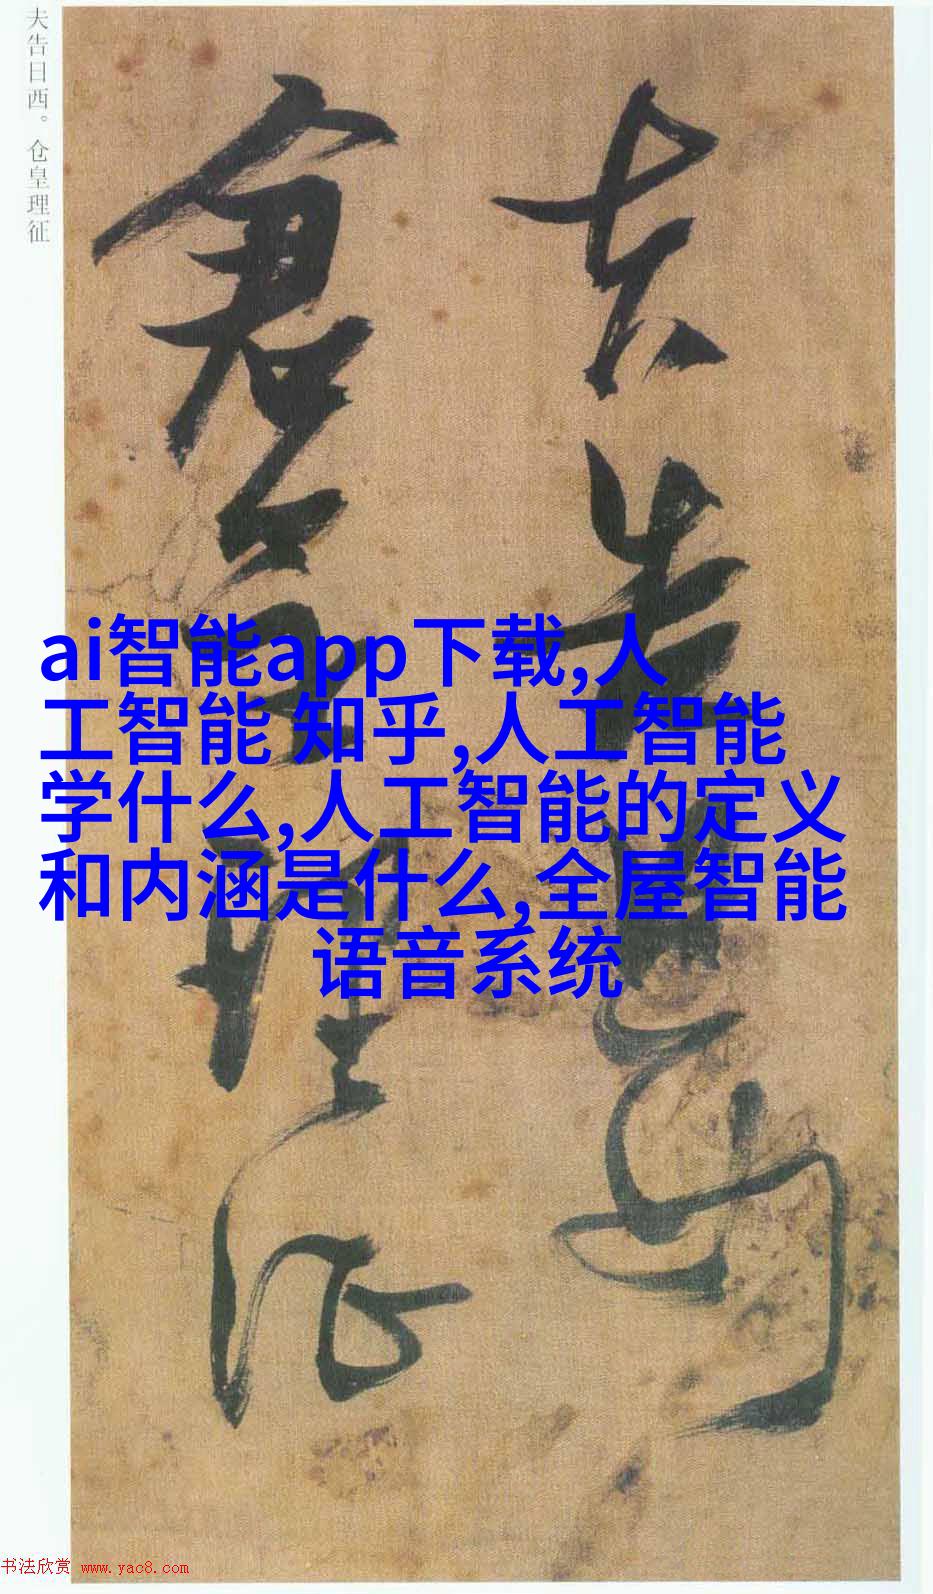 夫告日西。仓皇理征
夫告日西
倉皇理征
ai智能app下载,人
工智能 知乎,人工智能
学什么,人工智能的定义
和内涵是什么,全屋智能
语音系统
书法欣赏 www.yac8.com